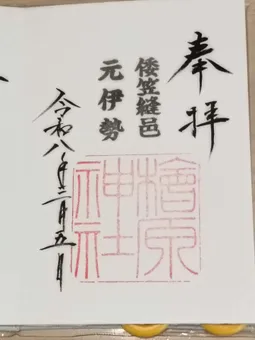 奉拝
倭笠縫邑
元伊勢
檜原
神社
令和八年二月五日